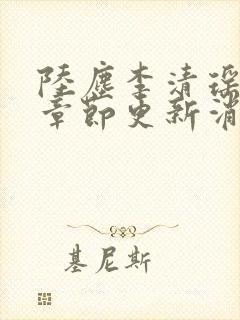 陸塵李清瑤
章節更新消
基尼斯